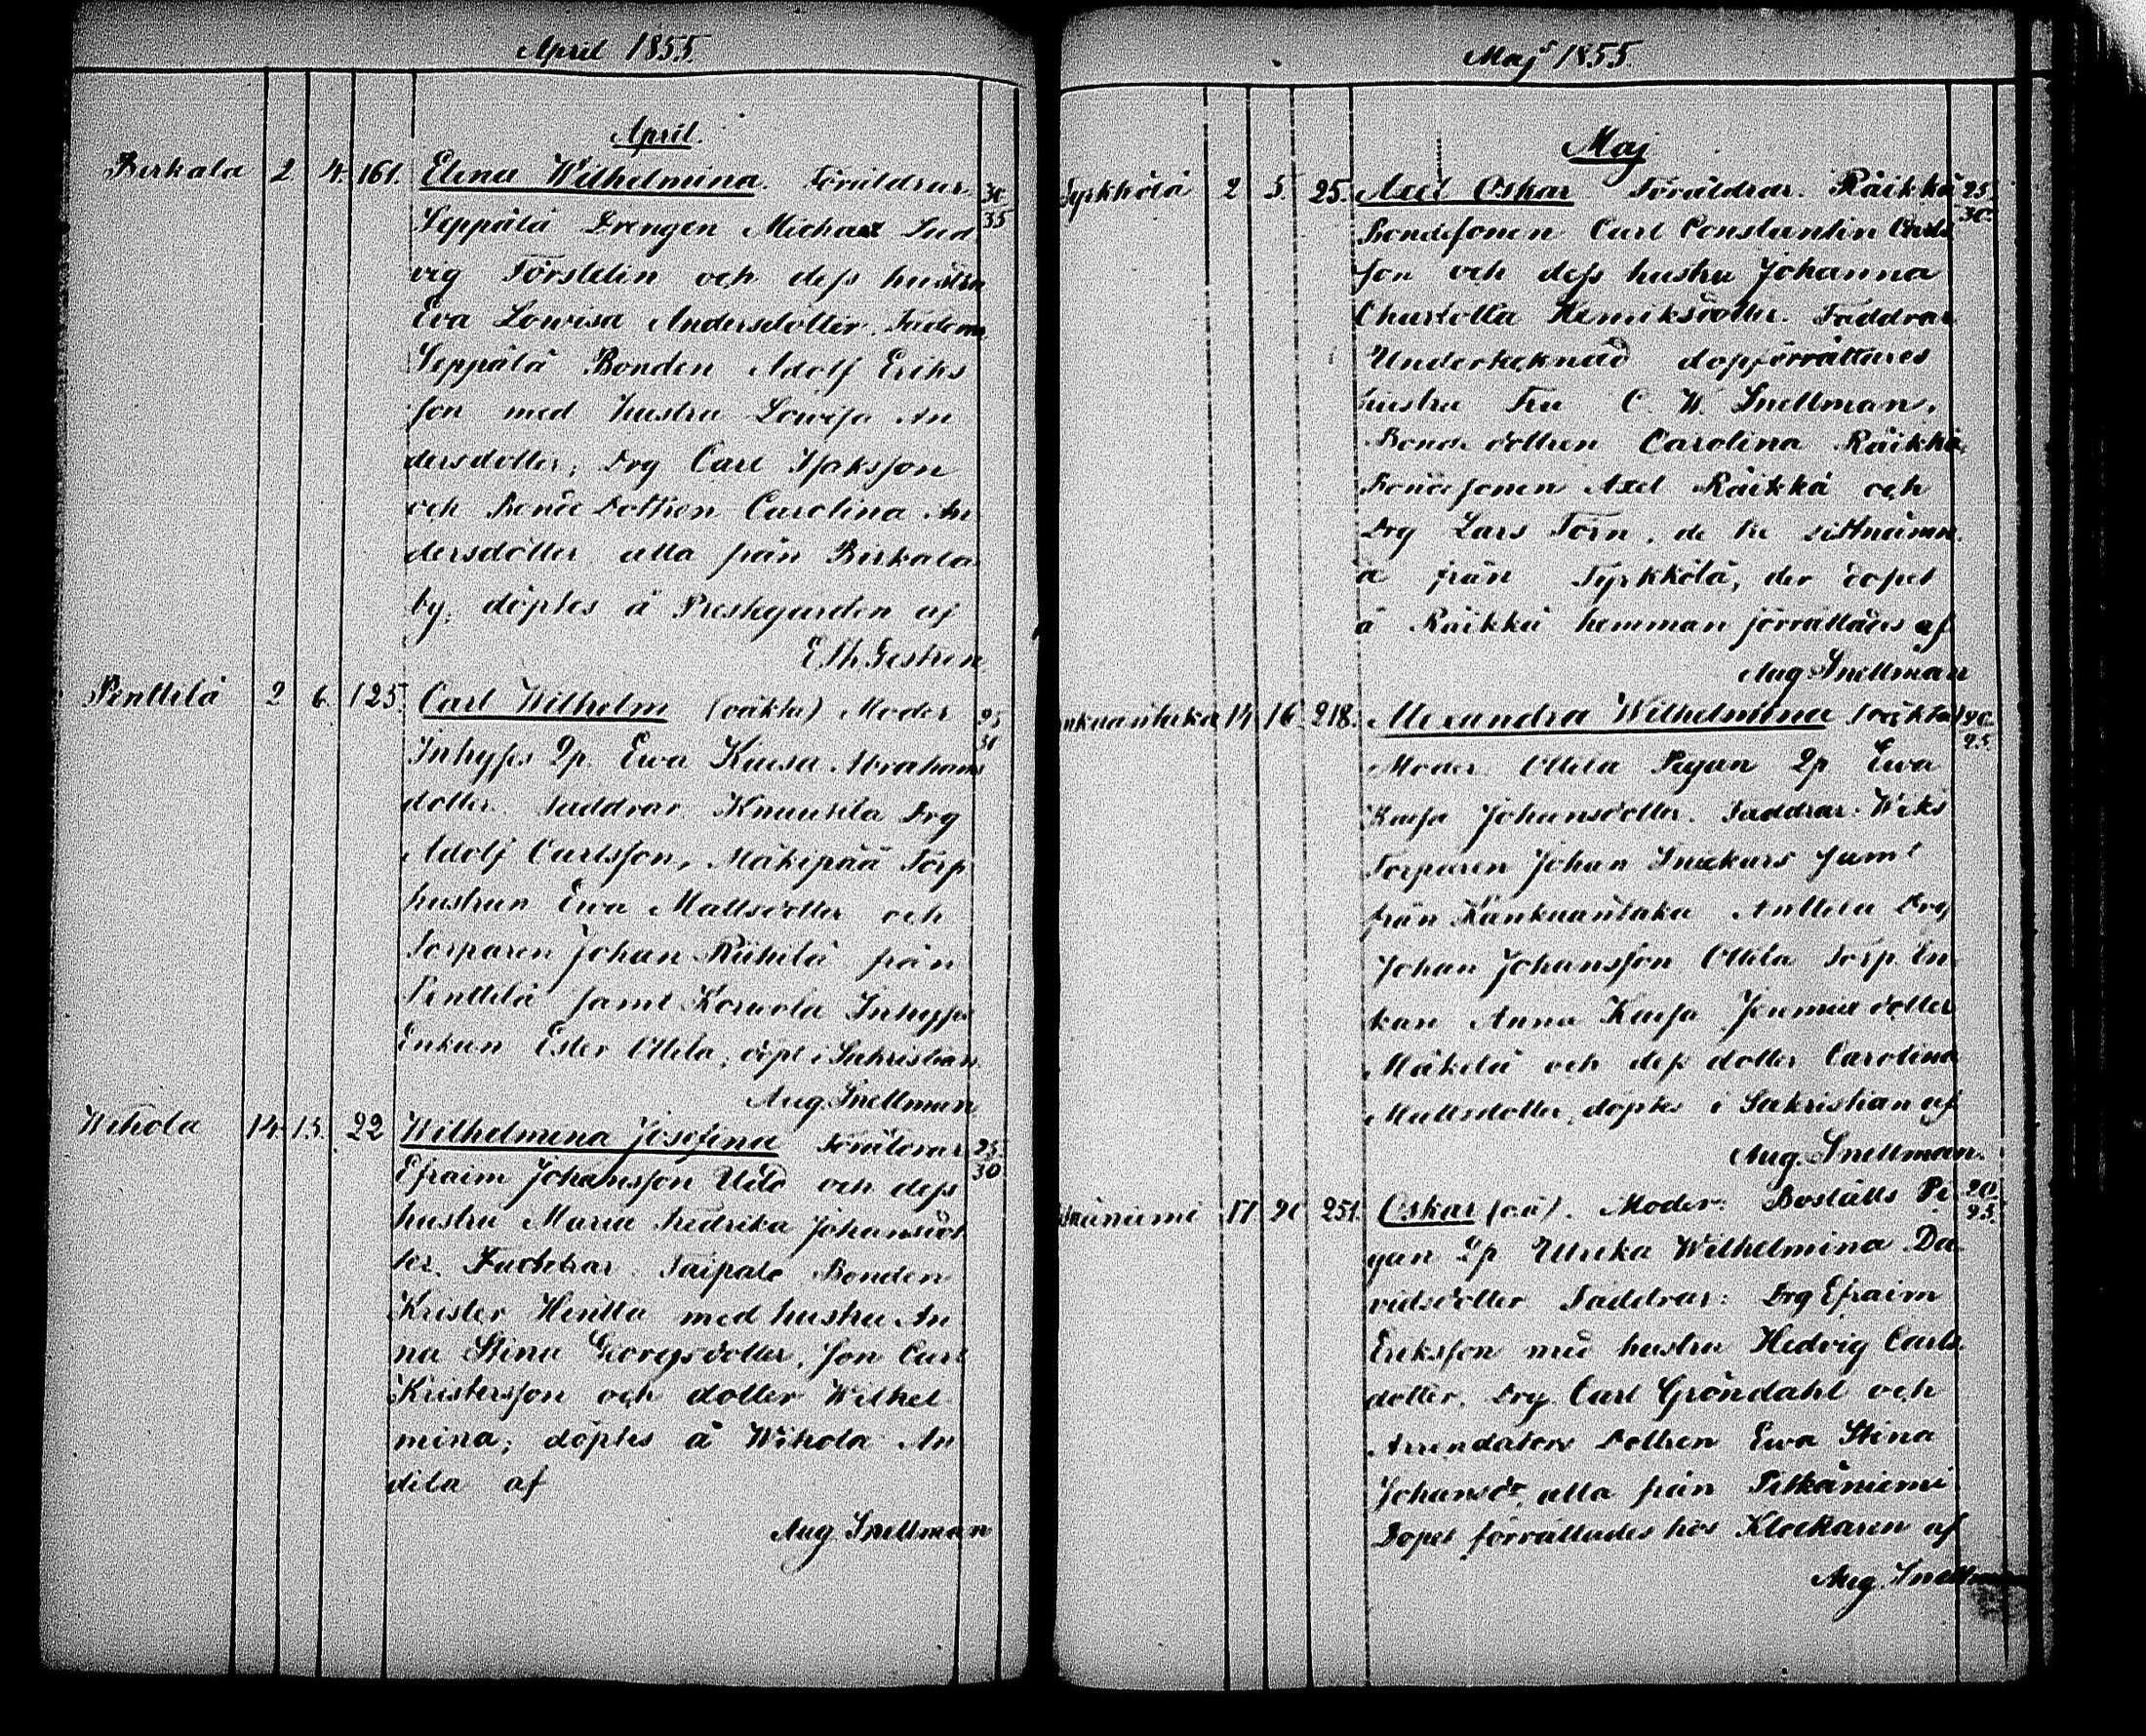 April 1855.
April.
Birkala 2 4. 161. Elena Wilhelmina. Föräldrar 30
Seppälä Drengen Michael Lud 35
vig Förstelin och dess hustru
Eva Lowisa Andersdotter.
Seppälä Bonden Adolf Eriks
son med hustru Lowisa An
dersdotter, Drg Carl Isaksson
och Bonde Dottren Carolina An
dersdotter alla från Birkala
by, döptes å Prestgården af
Penttilä 2 6. 125. Carl Wilhelm (oäkta) Moder 25
Inhyses Qp. Ewa Kaisa Abrahams 31
dotter. Faddrar Knuutila Drg
Adolf Carlsson, Mäkipää Torp
hustrun Ewa Mattsdotter och
Torparen Johan Riihilä från
Penttilä samt Korvola Inhyses
Enkan Ester Ottila, döpt i Sakristian
Aug. Snellman
Wihola 14. 15. 22 Wilhelmina Josefina Föräldrar 25
Efraim Johansson och dess 30
hustru Maria Fredrika Johansdot
ter. Faddrar Taipale Bonden
Krister Henttu med hustru An
na Stina Georgsdotter, son Carl
Kristersson och dotter Wilhel
mina; döptes å Wihola An
dila af
Aug Snellman
Maj 1855.
Maj
Tyrkkölä 2 5. 25. Axel Oskar Föräldrar. Räikkä 25
Bondesonen Carl Constantin Carls 30.
son och dess hustru Johanna
Charlotta Henriksdotter. Faddrar
Undertecknad dopförrättares
hustru Fru C. W. Snellman,
Bonde dottren Carolina Räikkä,
Bondesonen Axel Räikkä och
Drg Lars Törn, de tre sistnämn
a från Tyrkkölä, der dopet
å Räikkä hemman förrättades af
Aug Snellman
14 16 218. Alexandra Wilhelmina (oäkta) 20.
Moder Ottila Pigan Qp Ewa 25.
Kaisa Johansdotter. Faddrar: Wiks
Torparen Johan Snickars samt
från Kankaantaka Anttila Drg
Johan Johansson Ottila Torp En
kan Anna Kaisa Jeremia dotter
Mäkelä och dess dotter Carolina
Mattsdotter, döptes i Sakristian af
Aug. Snellman.
17 20 251. Oskar (oä). Moder: Boställs Pi 20
gan Qp Ulrika Wilhelmina Da 25.
vidsdotter Faddrar: Drg Efraim
Eriksson med hustru Hedvig Carls
dotter, Drg Carl Gröndahl och
Arrendators Dottren Ewa Stina
Johansdr, alla från Pitkäniemi
Dopet förrättades hos Klockaren af
Aug. Snellman